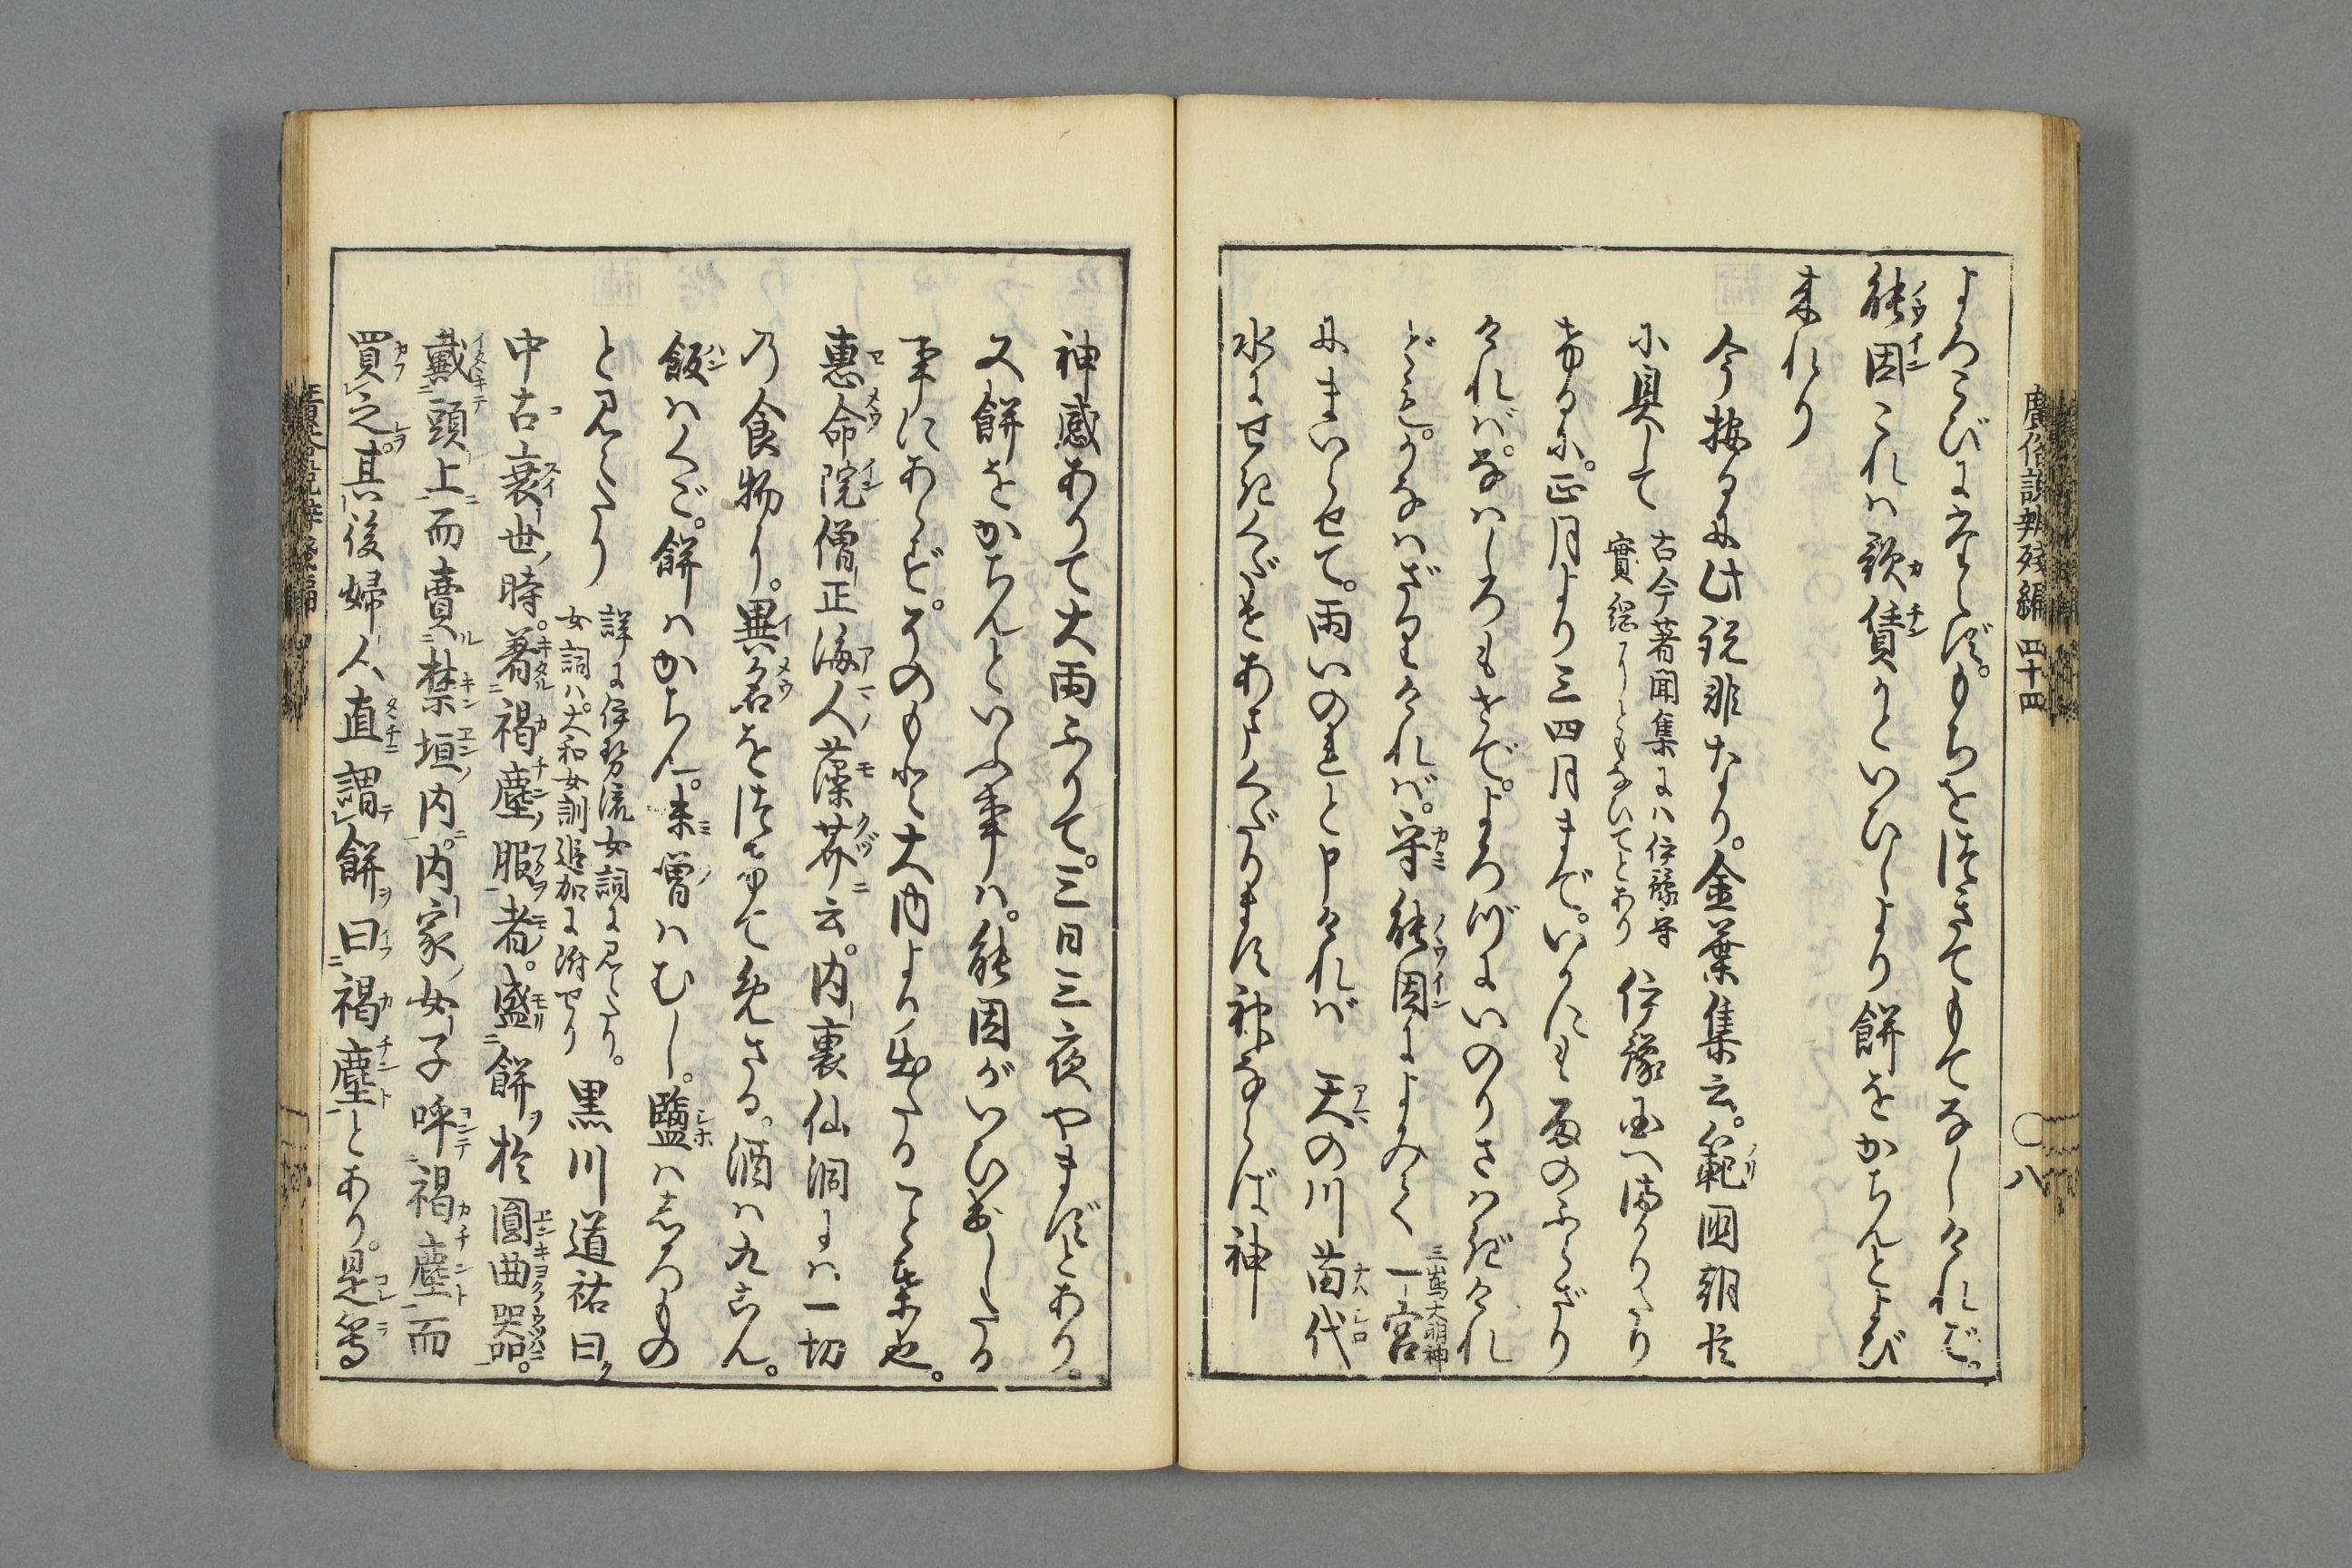 廣俗説辨殘編 四十四 〇八
よろこびにたへず。もちをつきてもてなしければ。
能因これは歌賃かといひしより餅をかちんとよび
来れり
今按るに此説非なり。金葉集云。範國朝臣
に具して
古今著聞集には伊豫守
實綱にともなひてとあり
伊豫国へまかりたり
けるに。正月より三四月まで。いかにも雨のふらざり
ければ。なはしろもせで。よろづにいのりさはぎけれ
ども。かなはざりければ。守能因によみて
一宮
三嶌大明神
にまいらせて。雨いのれと申ければ 天の川苗代
水にせきくだせあまくだります神ならば神
神感ありて大雨ふりて。三日三夜やまずとあり。
又餅をかちんといふ事は。能因がいひ出したる
事にあらず。そのもと大内より出たることば也。
惠命院僧正海人藻芥云。内裏仙洞には一切
乃食物に。異名をつけて免さる。酒は九こん。
飯はくご。餅はかちん。未曾はむし。鹽はしろもの
と見えたり
詳に伊勢流女詞に見えたり。
女詞は大和女訓追加に附せり
黒川道祐曰
中古衰世時。著褐塵服者。盛餅於圓曲器。
戴頭上而賣禁垣内。内家女子呼褐塵而
買之。其後婦人直謂餅曰褐塵とあり。是等